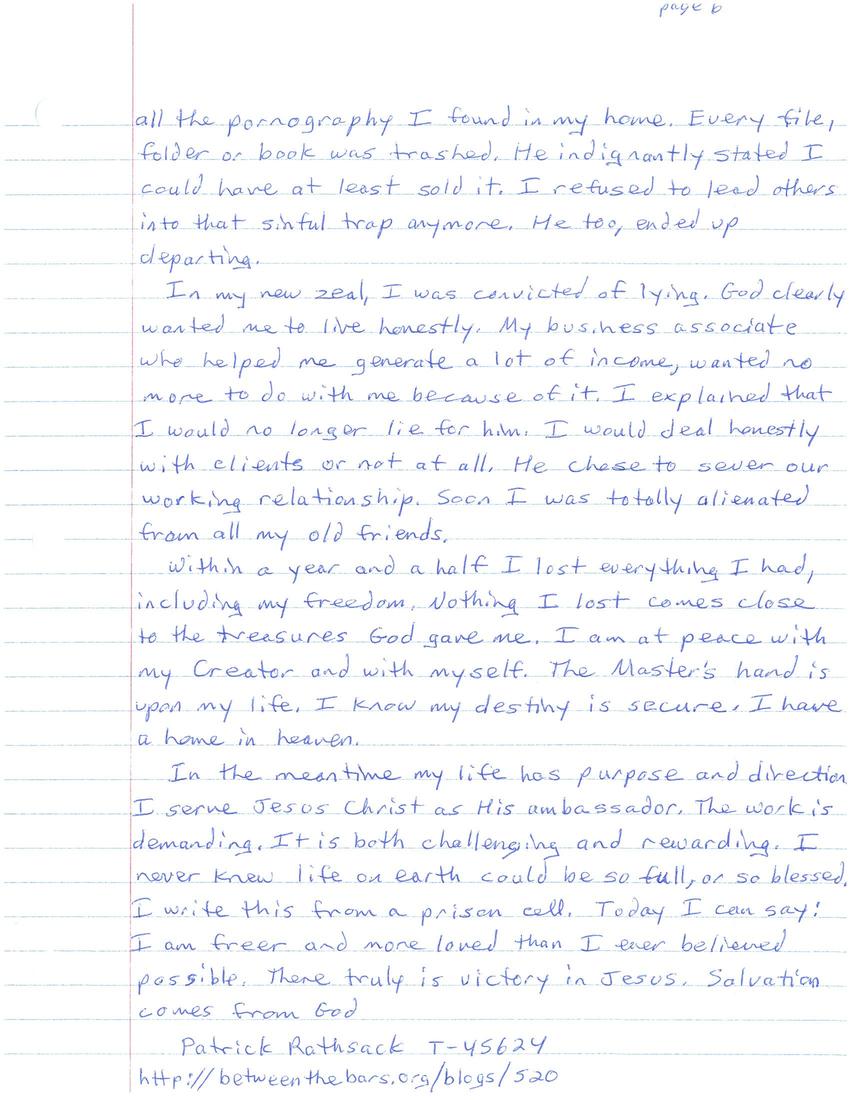 page 6
all the pornography I found in my home. Every file,
folder or book was trashed. He indignantly stated I
could have at least sold it. I refused to lead others
into that sinful trap anymore. He too, ended up
departing.
In my new zeal, I was convicted of lying. God clearly
wanted me to live honestly. My business associate
who helped me generate a lot of income, wanted no
more to do with me because of it. I explained that
I would no longer lie for him. I would deal honestly
with clients or not at all. He chose to sever our
working relationship. Soon I was totally alienated
from all my old friends.
Within a year and a half I lost everything I had,
including my freedom. Nothing I lost comes close
to the treasures God gave me. I am at peace with
my Creator and with myself. The Master's hand is
upon my life. I know my destiny is secure. I have
a home in heaven.
In the meantime my life has purpose and direction
I serve Jesus Christ as His ambassador. The work is
demanding. It is both challenging and rewarding. I
never knew life on earth could be so full, or so blessed.
I write this from a prison cell. Today I can say:
I am freer and more loved than I ever believed
possible. There truly is victory in Jesus. Salvation
comes from God
Patrick Rathsack T-45624
http://betweenthebars.org/blogs/520